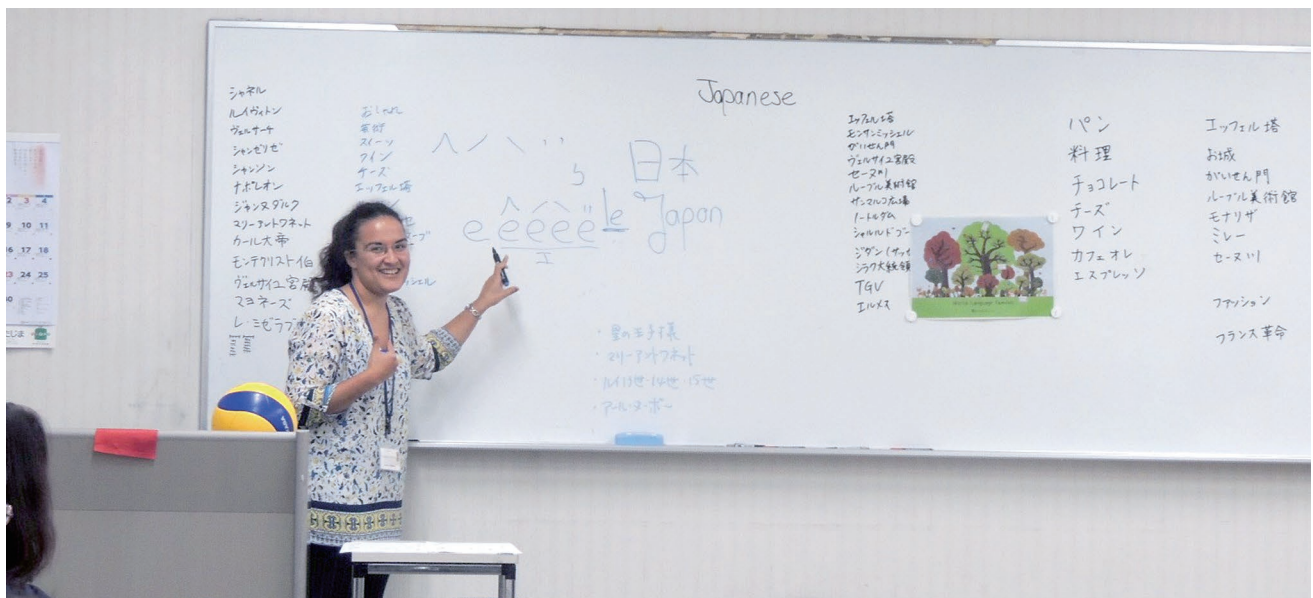 シャネル
ルイヴィトン
ヴェルサーチ
シャンゼリゼ
シャンソン
ナポレオン
ジャンヌダルク
マリーアントワネット
カール大帝
モンテクリスト伯
ヴェルサイユ宮殿
マヨネーズ
レ・ミゼラブ
おしゃれ
芸術
スイーツ
ワイン
チーズ
エッフェル塔
e ê é è ë le
エ
Japanese
日本
Japan
・星の王子様
・マリーアントワネット
・ルイ13世・14世・15世
・アール・ヌーボー
エッフェル塔
モンサンミッシェル
がいせん門
ヴェルサイユ宮殿
セーヌ川
ルーブル美術館
サンマルコ広場
ノートルダム
シャルルドゴー
ジダン(サッカ
シラク大統領
TGV
エルメス
パン
料理
チョコレート
チーズ
ワイン
カフェオレ
エスプレッソ
エッフェル塔
お城
がいせん門
ルーブル美術館
モナリザ
ミレー
セーヌ川
ファッション
フランス革命
World Language Families
2 3 4
9 10 11
16 17 18
23 24 25
30